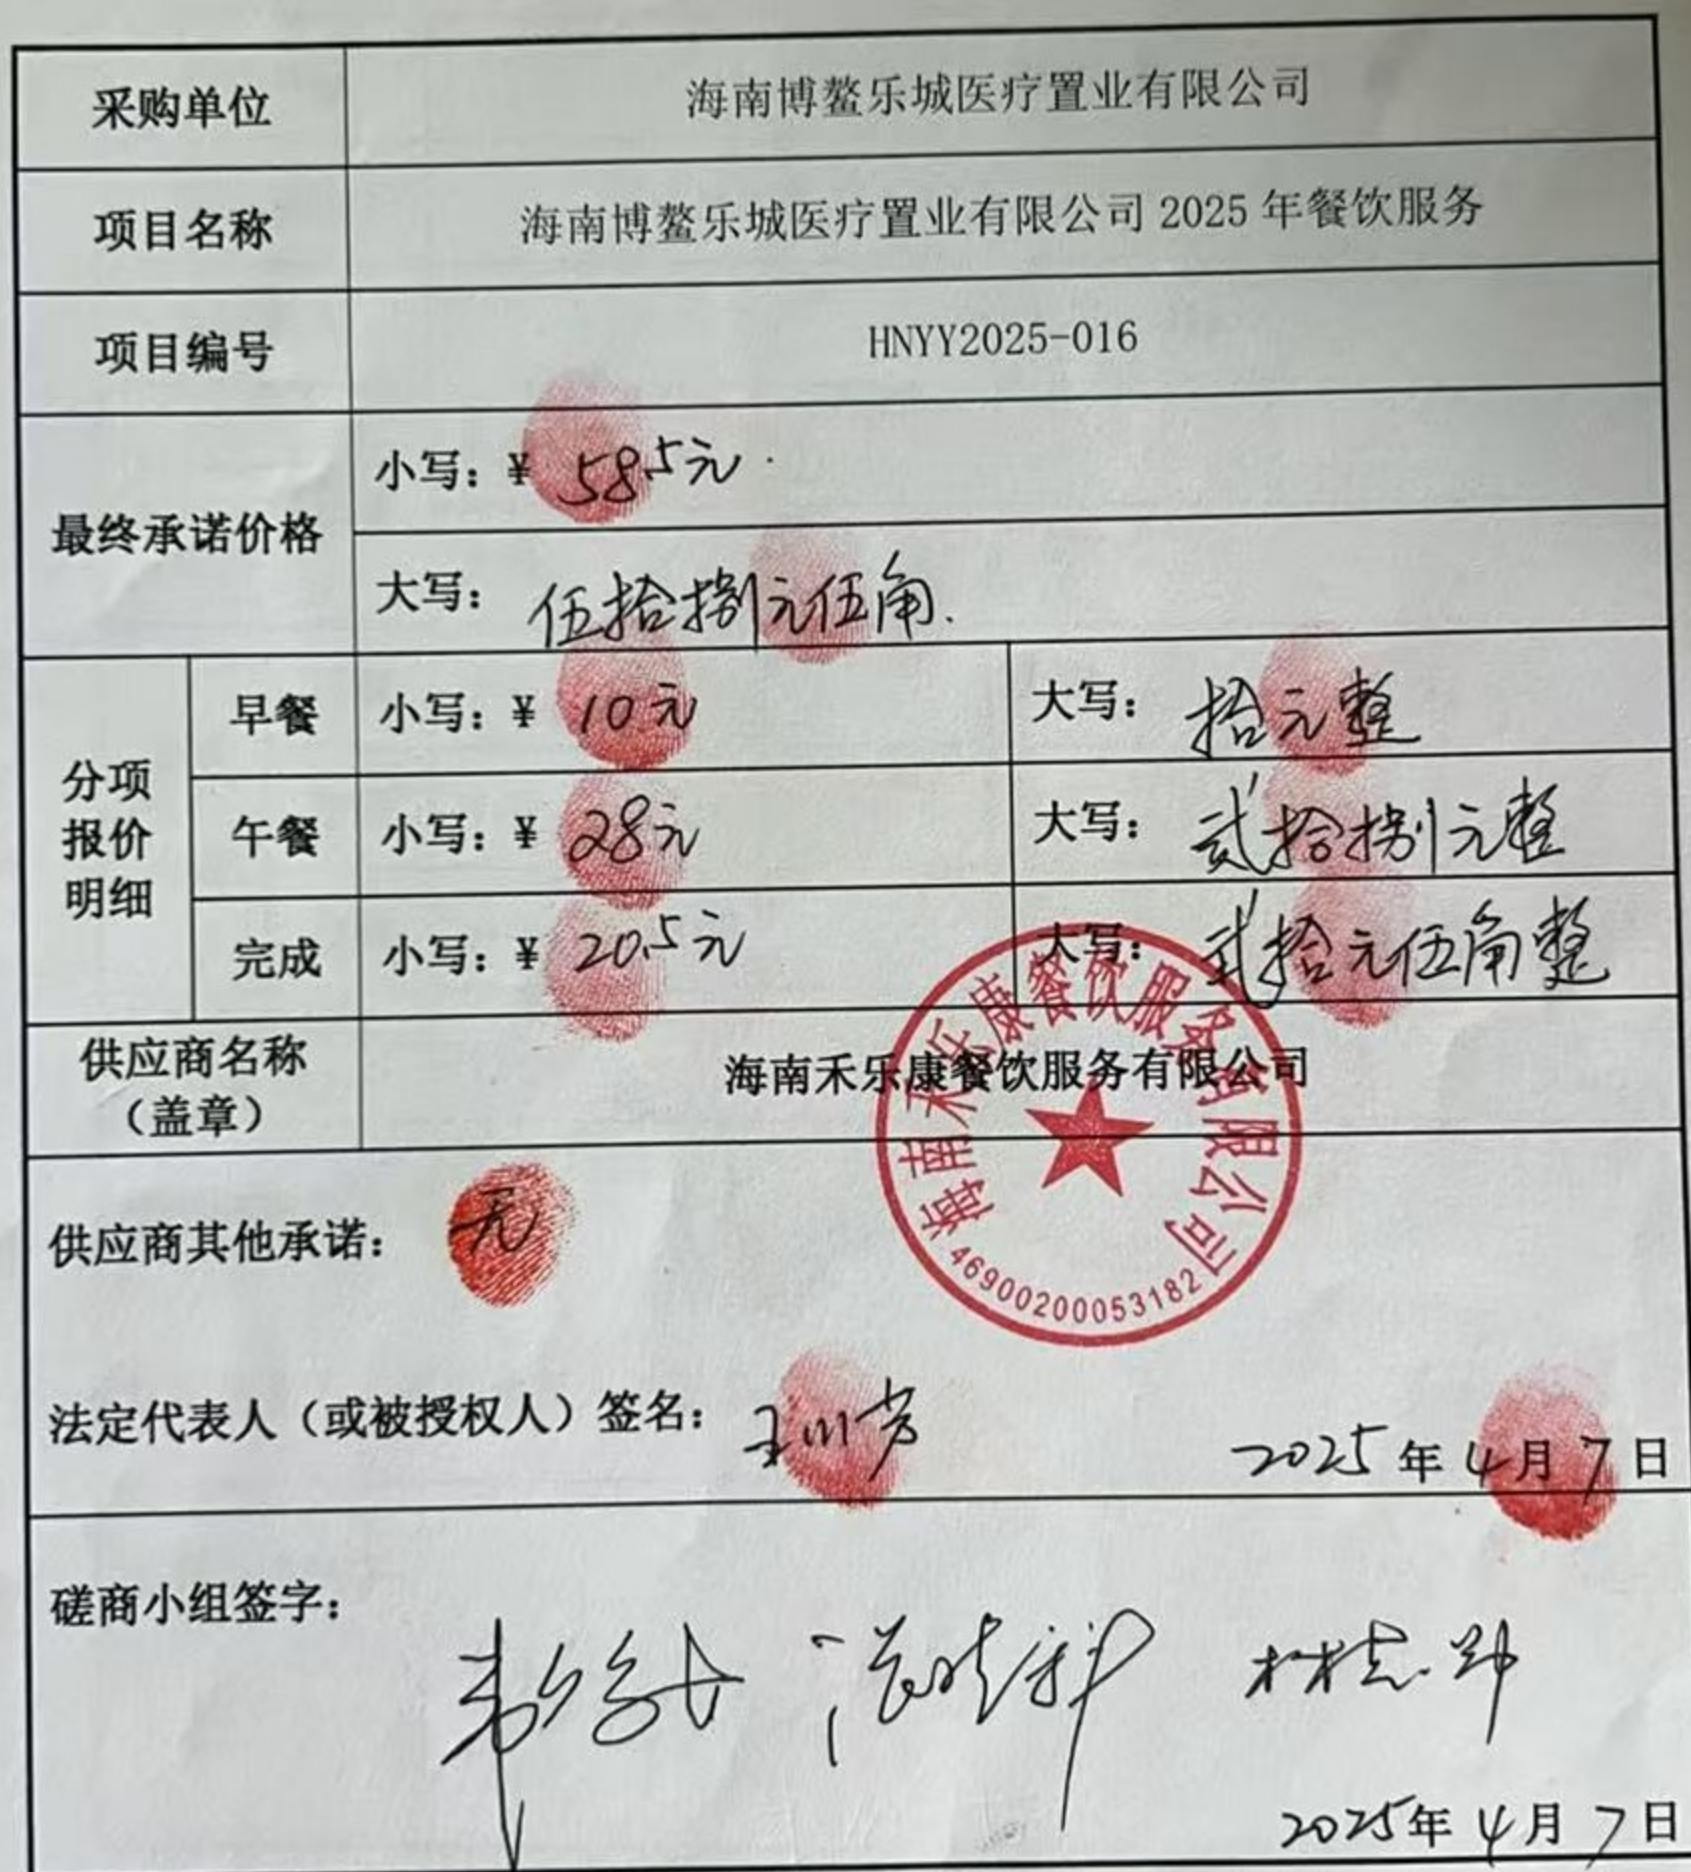 采购单位 海南博鳌乐城医疗置业有限公司
项目名称 海南博鳌乐城医疗置业有限公司 2025 年餐饮服务
项目编号 HNYY2025-016
最终承诺价格
小写：¥ 58.5元
大写： 伍拾捌元伍角.
分项
报价
明细
早餐 小写：¥ 10元 大写： 拾元整
午餐 小写：¥ 28元 大写： 贰拾捌元整
完成 小写：¥ 20.5元 大写： 贰拾元伍角整
供应商名称
（盖章）
海南禾乐康餐饮服务有限公司
海南禾乐康餐饮服务有限公司
46900200053182
供应商其他承诺： 无
法定代表人（或被授权人）签名： 王川芳
2025 年 4 月 7 日
磋商小组签字：
2025年 4 月 7 日